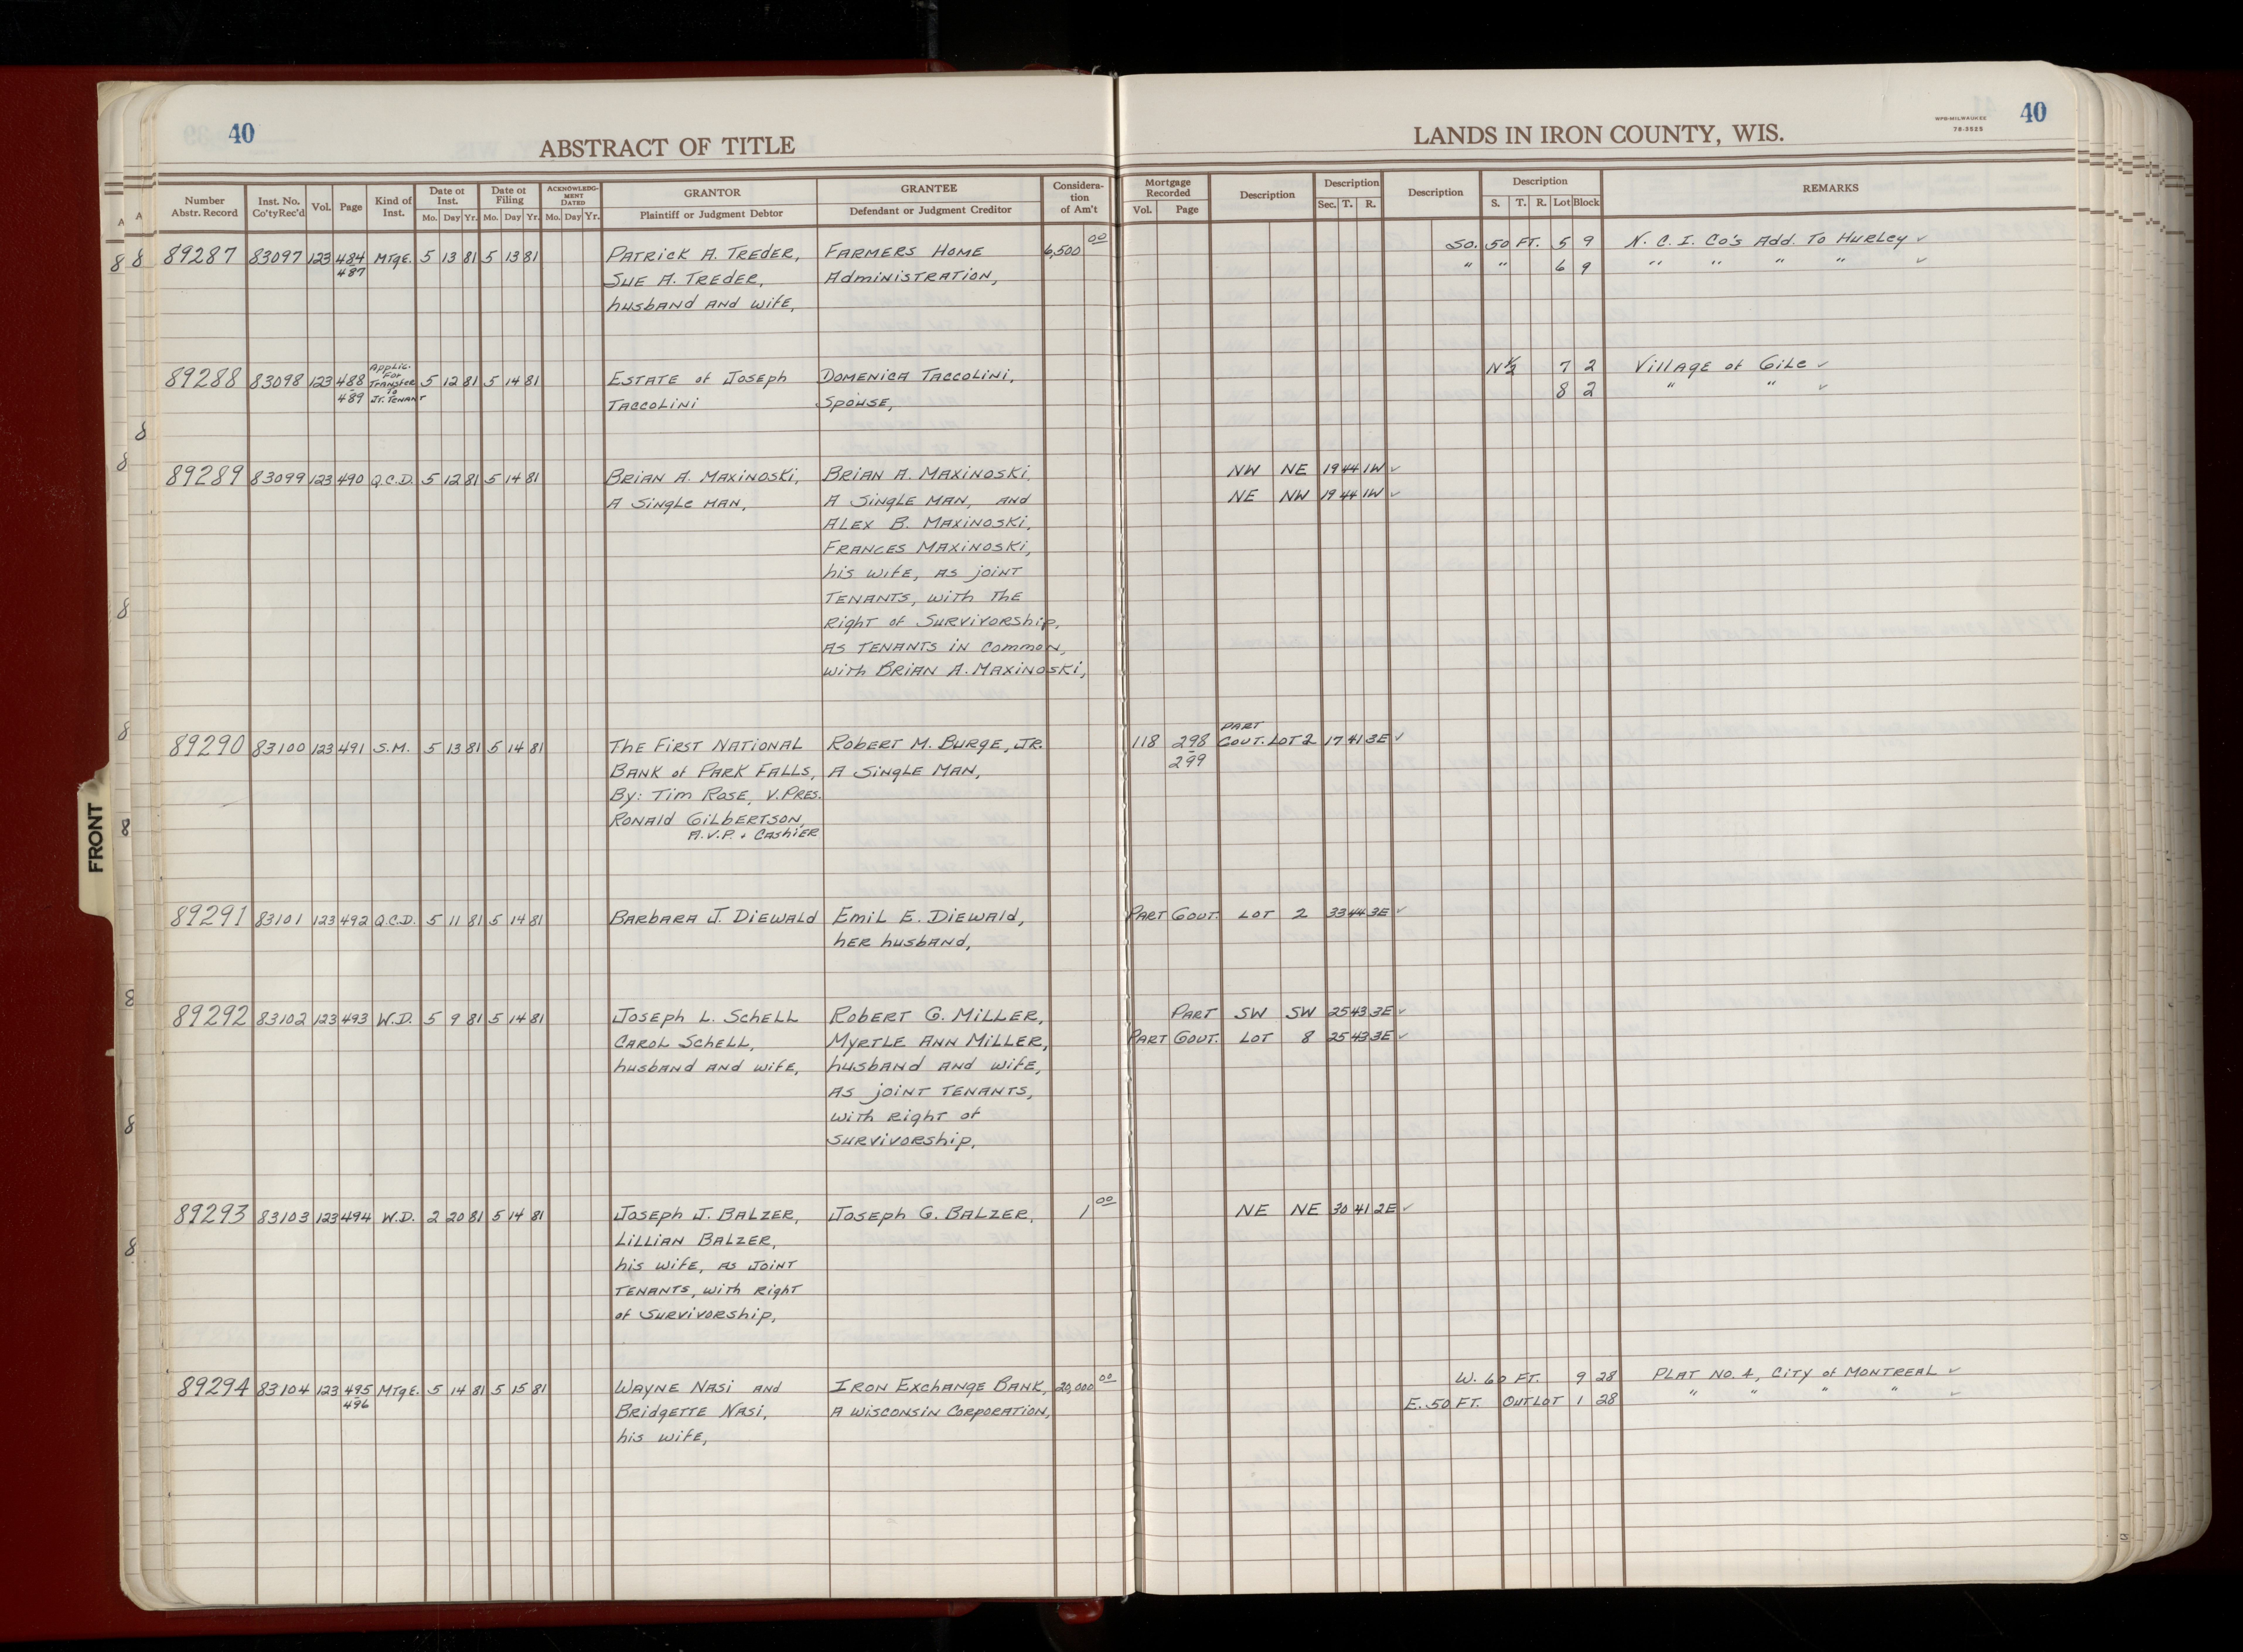 40
ABSTRACT OF TITLE
LANDS IN IRON COUNTY, WIS.
WPB-MILWAUKEE
78-3525
40
Number Abstr. Record | Inst. No. Co'ty Rec'd | Vol. | Page | Kind of Inst. | Date of Inst. Mo. Day Yr. | Date of Filing Mo. Day Yr. | ACKNOWLEDGMENT DATED Mo. Day Yr. | GRANTOR Plaintiff or Judgment Debtor | GRANTEE Defendant or Judgment Creditor | Consideration of Am't | Mortgage Recorded Vol. Page | Description | Description Sec. T. R. | Description | Description S. T. R. Lot Block | REMARKS
89287 83097 123 484 Mtge. 5 13 81 5 13 81 Patrick A. Treder, Farmers Home 6,500 00 So. 50 Ft. 5 9 N. C. I. Co's Add. To Hurley ✓
487 Sue A. Treder, Administration, " " 6 9 " " " " ✓
husband and wife,
89288 83098 123 488 Applic. For Transfer To Jt. Tenant 5 12 81 5 14 81 Estate of Joseph Domenica Taccolini, N½ 7 2 Village of Gile ✓
489 Taccolini Spouse, 8 2 " " ✓
89289 83099 123 490 Q.C.D. 5 12 81 5 14 81 Brian A. Maxinoski, Brian A. Maxinoski, NW NE 19 44 1W ✓
A Single Man, A Single Man, and NE NW 19 44 1W ✓
Alex B. Maxinoski,
Frances Maxinoski,
his wife, as joint
Tenants, with the
Right of Survivorship,
as Tenants in Common,
with Brian A. Maxinoski,
89290 83100 123 491 S.M. 5 13 81 5 14 81 The First National Robert M. Burge, Jr. 118 298 Part Gout. Lot 2 17 41 3E ✓
Bank of Park Falls, A Single Man, 299
By: Tim Rose, V. Pres.
Ronald Gilbertson,
A.V.P. + Cashier
89291 83101 123 492 Q.C.D. 5 11 81 5 14 81 Barbara J. Diewald Emil E. Diewald, Part Gout. Lot 2 33 44 3E ✓
her husband,
89292 83102 123 493 W.D. 5 9 81 5 14 81 Joseph L. Schell Robert G. Miller, Part SW SW 25 43 3E ✓
Carol Schell, Myrtle Ann Miller, Part Gout. Lot 8 25 43 3E ✓
husband and wife, husband and wife,
as joint Tenants,
with Right of
Survivorship,
89293 83103 123 494 W.D. 2 20 81 5 14 81 Joseph J. Balzer, Joseph G. Balzer, 1 00 NE NE 30 41 2E ✓
Lillian Balzer,
his wife, as Joint
Tenants, with Right
of Survivorship,
89294 83104 123 495 Mtge. 5 14 81 5 15 81 Wayne Nasi and Iron Exchange Bank, 20,000 00 W. 60 Ft. 9 28 Plat No. 4, City of Montreal ✓
496 Bridgette Nasi, A Wisconsin Corporation, E. 50 Ft. Outlot 1 28 " " " " ✓
his wife,
FRONT